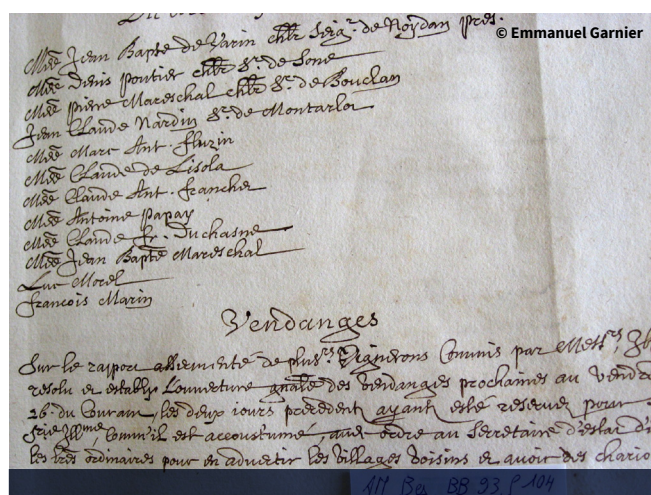 © Emmanuel Garnier
Mre Jean Bapte de Varin chlr Seigr. de Noydan pres.
Mre Denis Poutier chlr Sr. de Sone
Mre Pierre Mareschal chlr Sr. de Bouclan
Jean Claude Nardin Sr. de Montarlot
Mre Marc Ant. Fluzin
Mre Claude de Lisola
Mre Claude Ant. Franchet
Mre Antoine Papay
Mre Claude Fr. Duchasne
Mre Jean Bapte Mareschal
Luc Morel
Francois Marin
Vendanges
Sur le rapport assermenté de plusrs Vignerons Commis par Messrs
resolu et estably L'ouverture gnâle des vendanges prochaines au vendre
26. du Courant, les deux iours precedent ayant esté reservez pour
Comm'il est accoustumé, avec ordre au Secretaire d'estat
les lres ordinaires pour en advertir les villages voisins et avoir des chario
AM Bes BB 93 f° 104